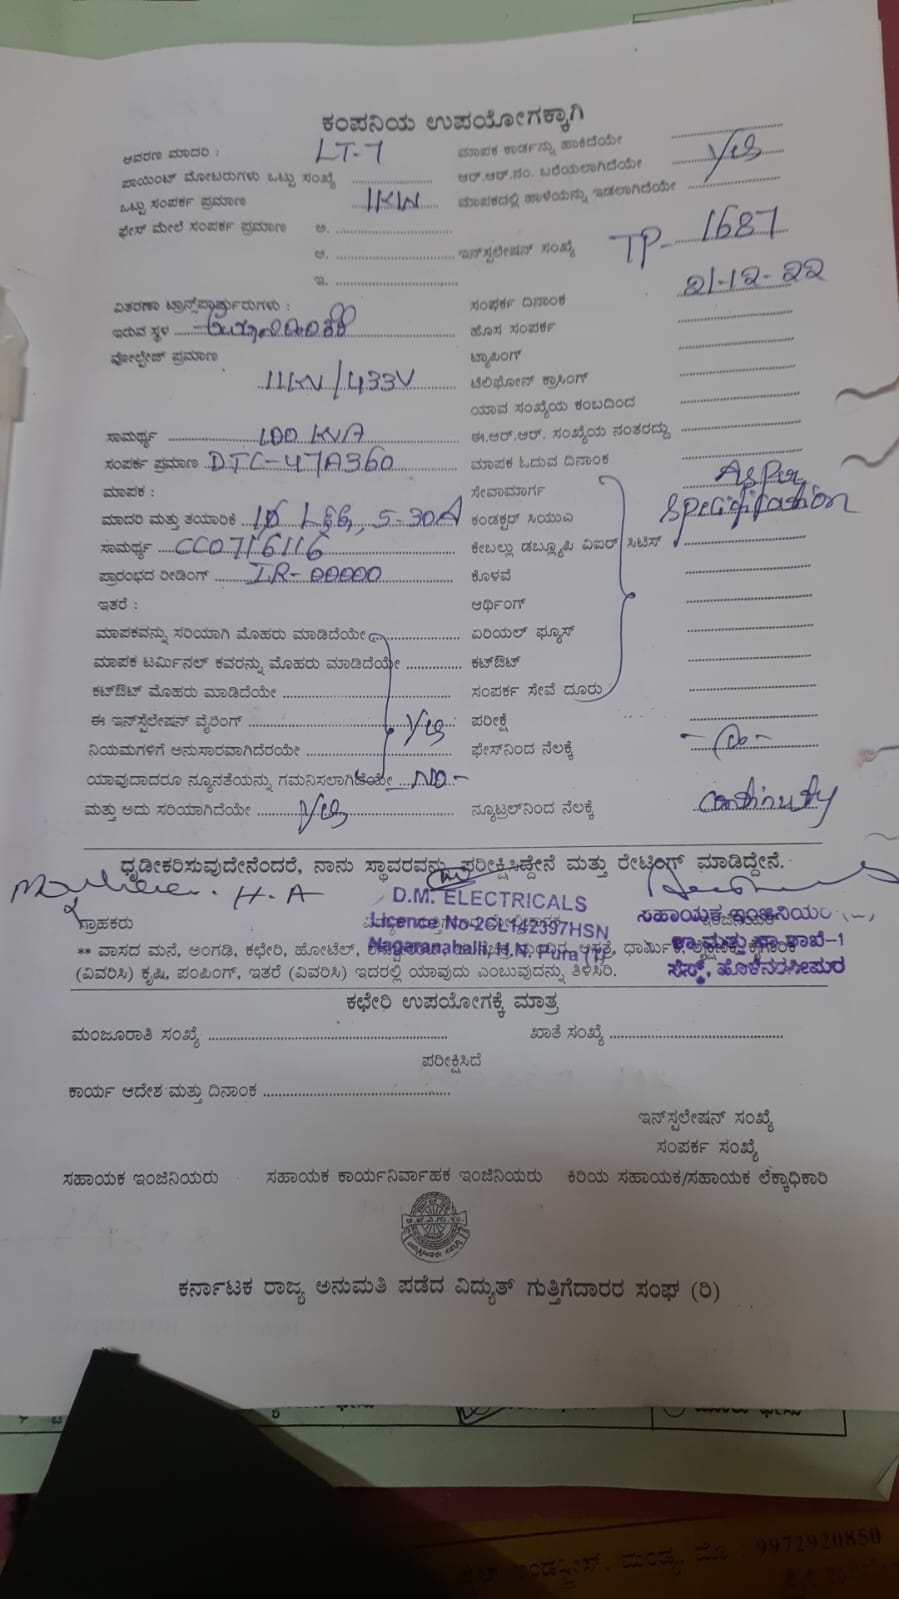 ಕಂಪನಿಯ ಉಪಯೋಗಕ್ಕಾಗಿ
ಆವರಣ ಮಾದರಿ : LT-7 ಮಾಪಕ ಕಾರ್ಡನ್ನು ಹಾಕಿದೆಯೇ
ಪಾಯಿಂಟ್ ಮೋಟರುಗಳು ಒಟ್ಟು ಸಂಖ್ಯೆ ಆರ್.ಆರ್.ನಂ. ಬರೆಯಲಾಗಿದೆಯೇ Yes
ಒಟ್ಟು ಸಂಪರ್ಕ ಪ್ರಮಾಣ 1KW ಮಾಪಕದಲ್ಲಿ ಹಾಳೆಯನ್ನು ಇಡಲಾಗಿದೆಯೇ
ಫೇಸ್ ಮೇಲೆ ಸಂಪರ್ಕ ಪ್ರಮಾಣ ಅ.
ಆ. ಇನ್‌ಸ್ಟಲೇಷನ್ ಸಂಖ್ಯೆ TP-1687
ಇ.
ವಿತರಣಾ ಟ್ರಾನ್ಸ್‌ಫಾರ್ಮರುಗಳು : ಸಂಪರ್ಕ ದಿನಾಂಕ 21-12-22
ಇರುವ ಸ್ಥಳ ಹೊಸ ಸಂಪರ್ಕ
ವೋಲ್ಟೇಜ್ ಪ್ರಮಾಣ ಟ್ಯಾಪಿಂಗ್
11KV/433V ಟೆಲಿಫೋನ್ ಕ್ರಾಸಿಂಗ್
ಯಾವ ಸಂಖ್ಯೆಯ ಕಂಬದಿಂದ
ಸಾಮರ್ಥ್ಯ 100 KVA ಈ.ಆರ್.ಆರ್. ಸಂಖ್ಯೆಯ ನಂತರದ್ದು
ಸಂಪರ್ಕ ಪ್ರಮಾಣ DTC-47A360 ಮಾಪಕ ಓದುವ ದಿನಾಂಕ
ಮಾಪಕ : ಸೇವಾಮಾರ್ಗ As per
ಮಾದರಿ ಮತ್ತು ತಯಾರಿಕೆ 1Ø L&G, 5-30A ಕಂಡಕ್ಟರ್ ಸಿಯುಎ specification
ಸಾಮರ್ಥ್ಯ CC0716116 ಕೇಬಲ್ಲು ಡಬ್ಲ್ಯೂಪಿ ವಿಐರ್ ಸಿಟಿಸ್
ಪ್ರಾರಂಭದ ರೀಡಿಂಗ್ IR-00000 ಕೊಳವೆ
ಇತರೆ : ಆರ್ಥಿಂಗ್
ಮಾಪಕವನ್ನು ಸರಿಯಾಗಿ ಮೊಹರು ಮಾಡಿದೆಯೇ ಏರಿಯಲ್ ಫ್ಯೂಸ್
ಮಾಪಕ ಟರ್ಮಿನಲ್ ಕವರನ್ನು ಮೊಹರು ಮಾಡಿದೆಯೇ ಕಟ್‌ಔಟ್
ಕಟ್‌ಔಟ್ ಮೊಹರು ಮಾಡಿದೆಯೇ ಸಂಪರ್ಕ ಸೇವೆ ದೂರು
ಈ ಇನ್‌ಸ್ಟೆಲೇಷನ್ ವೈರಿಂಗ್ Yes ಪರೀಕ್ಷೆ
ನಿಯಮಗಳಿಗೆ ಅನುಸಾರವಾಗಿದೆರಯೇ ಫೇಸ್‌ನಿಂದ ನೆಲಕ್ಕೆ
ಯಾವುದಾದರೂ ನ್ಯೂನತೆಯನ್ನು ಗಮನಿಸಲಾಗಿದೆಯೇ NO-
ಮತ್ತು ಅದು ಸರಿಯಾಗಿದೆಯೇ Yes ನ್ಯೂಟ್ರಲ್‌ನಿಂದ ನೆಲಕ್ಕೆ continuty
ಧೃಡೀಕರಿಸುವುದೇನೆಂದರೆ, ನಾನು ಸ್ಥಾವರವನ್ನು ಪರೀಕ್ಷಿಸಿದ್ದೇನೆ ಮತ್ತು ರೇಟಿಂಗ್ ಮಾಡಿದ್ದೇನೆ.
H.A
D.M. ELECTRICALS
ಗ್ರಾಹಕರು Licence No-2CL142397HSN ಸಹಾಯಕ ಇಂಜಿನಿಯರ್
Nagaranahalli, H.N. Pura (T) ಶಾಖೆ-1
ಸೆಸ್ಕ್, ಹೊಳೆನರಸೀಪುರ
** ವಾಸದ ಮನೆ, ಅಂಗಡಿ, ಕಛೇರಿ, ಹೋಟೆಲ್, ಆಸ್ಪತ್ರೆ, ಧಾರ್ಮಿಕ, ಶೈಕ್ಷಣಿಕ, ಕೈಗಾರಿಕೆ
(ವಿವರಿಸಿ) ಕೃಷಿ, ಪಂಪಿಂಗ್, ಇತರೆ (ವಿವರಿಸಿ) ಇದರಲ್ಲಿ ಯಾವುದು ಎಂಬುವುದನ್ನು ತಿಳಿಸಿರಿ.
ಕಛೇರಿ ಉಪಯೋಗಕ್ಕೆ ಮಾತ್ರ
ಮಂಜೂರಾತಿ ಸಂಖ್ಯೆ ಖಾತೆ ಸಂಖ್ಯೆ
ಪರೀಕ್ಷಿಸಿದೆ
ಕಾರ್ಯ ಆದೇಶ ಮತ್ತು ದಿನಾಂಕ
ಇನ್‌ಸ್ಟಲೇಷನ್ ಸಂಖ್ಯೆ
ಸಂಪರ್ಕ ಸಂಖ್ಯೆ
ಸಹಾಯಕ ಇಂಜಿನಿಯರು ಸಹಾಯಕ ಕಾರ್ಯನಿರ್ವಾಹಕ ಇಂಜಿನಿಯರು ಕಿರಿಯ ಸಹಾಯಕ/ಸಹಾಯಕ ಲೆಕ್ಕಾಧಿಕಾರಿ
ಕರ್ನಾಟಕ ರಾಜ್ಯ ಅನುಮತಿ ಪಡೆದ ವಿದ್ಯುತ್ ಗುತ್ತಿಗೆದಾರರ ಸಂಘ (ರಿ)
9972920850